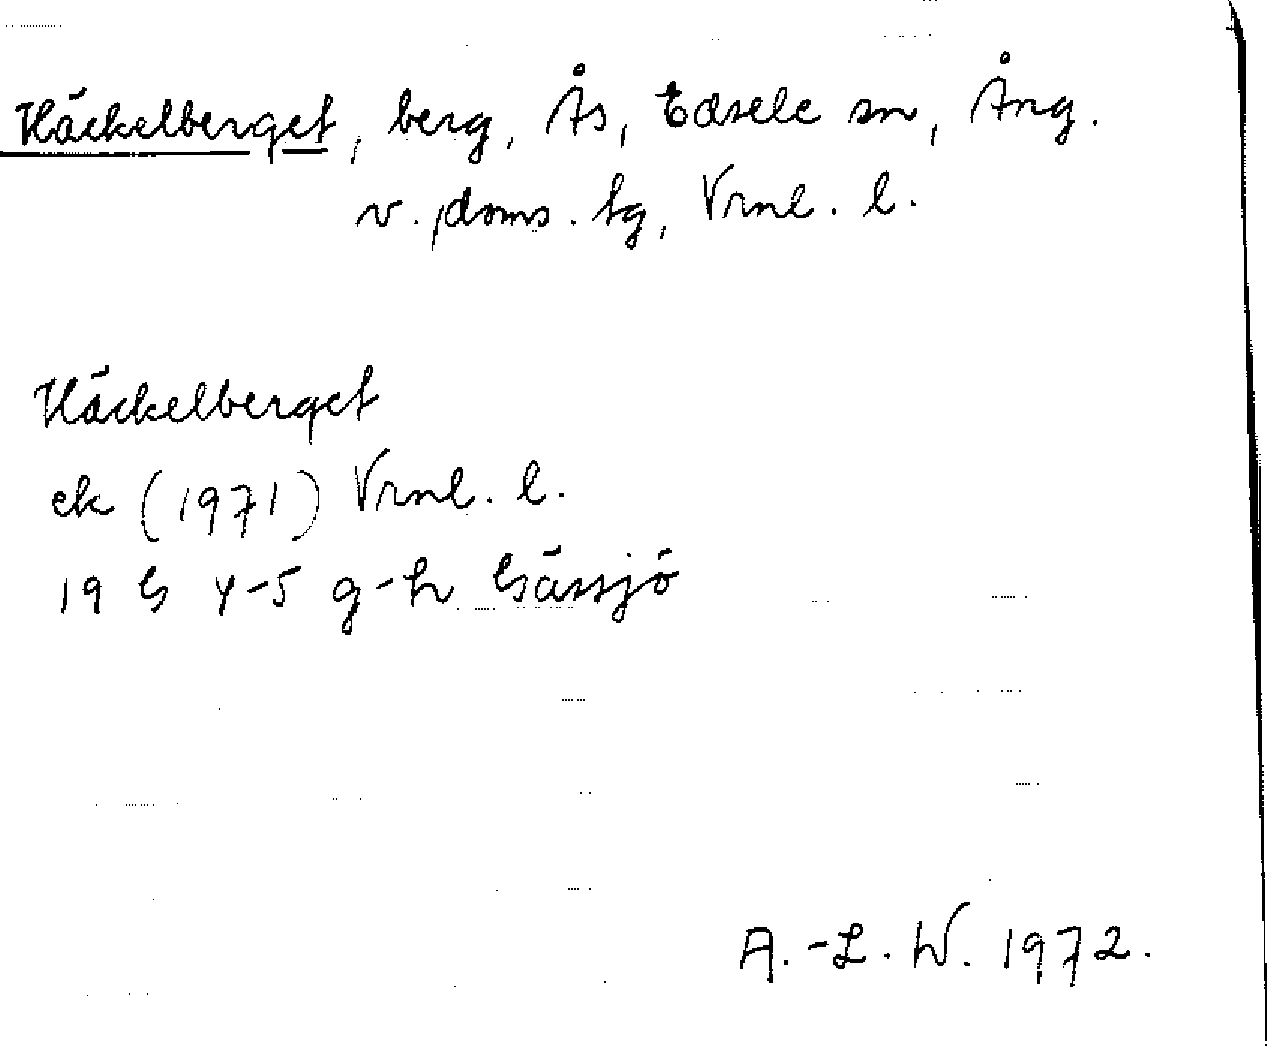 Häckelberget, berg, Ås, Edsele sn, Ång.
v. doms. tg, Vrnl. l.
Häckelberget
ek (1971) Vrnl. l.
19 G 4-5 g-h Gässjö
A.-L. W. 1972.